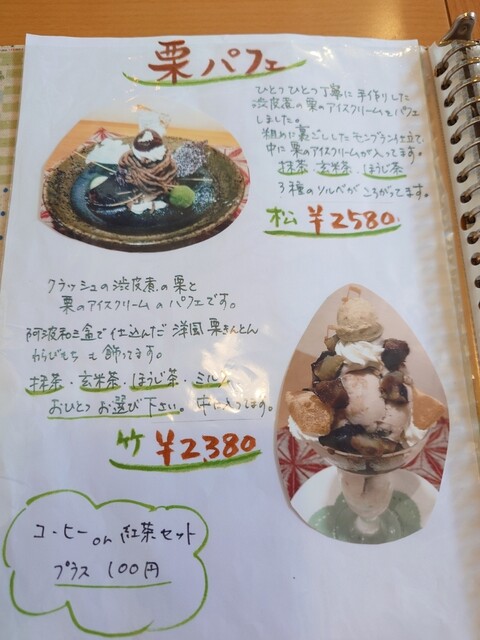 栗パフェ
ひとつひとつ丁寧に手作りした
渋皮煮の栗のアイスクリームをパフェに
しました。
粗めに裏ごししたモンブラン仕立て、
中に栗のアイスクリームが入ってます。
抹茶・玄米茶・ほうじ茶
3種のソルベが ころがってます。
松 ¥2580.
クラッシュの渋皮煮の栗と
栗のアイスクリームのパフェです。
阿波和三盆で仕込んだ 洋風栗きんとん
わらびもち も飾ってます。
抹茶・玄米茶・ほうじ茶・ミルク
おひとつお選び下さい。中に入ってます。
竹 ¥2,380
コーヒー or 紅茶セット
プラス 100円